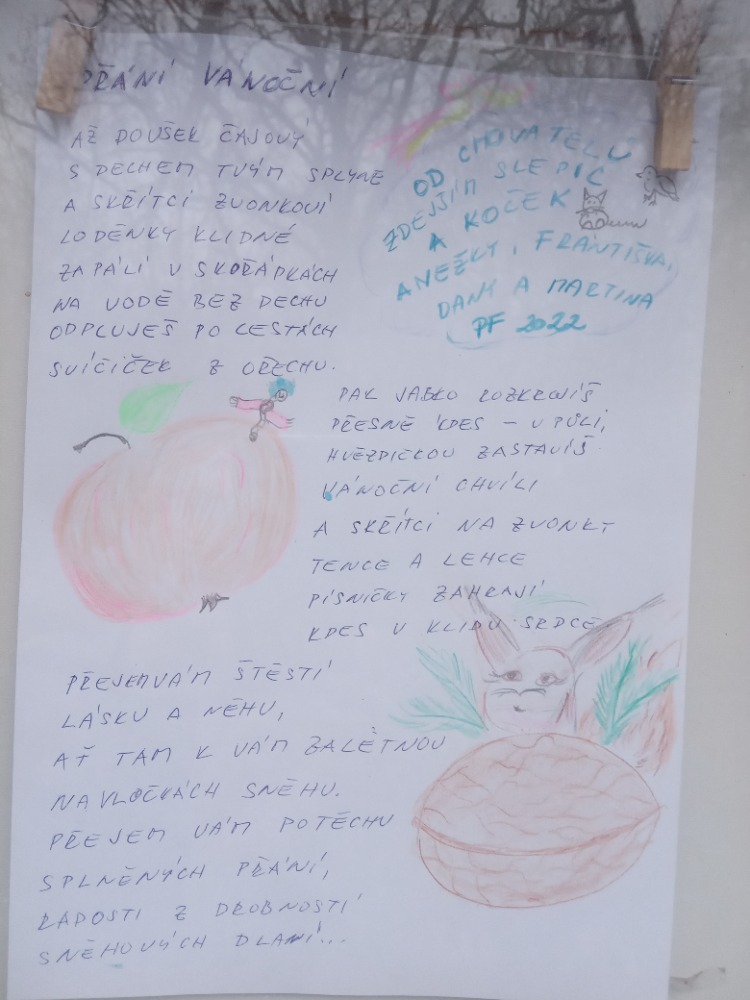 PŘÁNÍ VÁNOČNÍ
AŽ DOUŠEK ČAJOVÝ
S DECHEM TVÝM SPLYNE
A SKŘÍTCI ZVONKOVÍ
LODĚNKY KLIDNÉ
ZAPÁLÍ V SKOŘÁPKÁCH
NA VODĚ BEZ DECHU
ODPLUJEŠ PO CESTÁCH
SVÍČIČEK Z OŘECHU.
OD CHOVATELŮ
ZDEJŠÍM SLEPIC
A KOČEK
ANEŽKY, FRANTIŠKA,
DANY A MARTINA
PF 2022
PAK JABLO ROZKROJÍŠ
PŘESNĚ KDES – V PŮLI,
HVĚZDIČKOU ZASTAVÍŠ
VÁNOČNÍ CHVÍLI
A SKŘÍTCI NA ZVONKY
TENCE A LEHCE
PÍSNIČKY ZAHRAJÍ
KDES V KLIDU SRDCE
PŘEJEM VÁM ŠTĚSTÍ
LÁSKU A NĚHU,
AŤ TAM K VÁM ZALÉTNOU
NA VLOČKÁCH SNĚHU.
PŘEJEM VÁM POTĚCHU
SPLNĚNÝCH PŘÁNÍ,
RADOSTI Z DROBNOSTÍ
SNĚHOVÝCH DLANÍ...